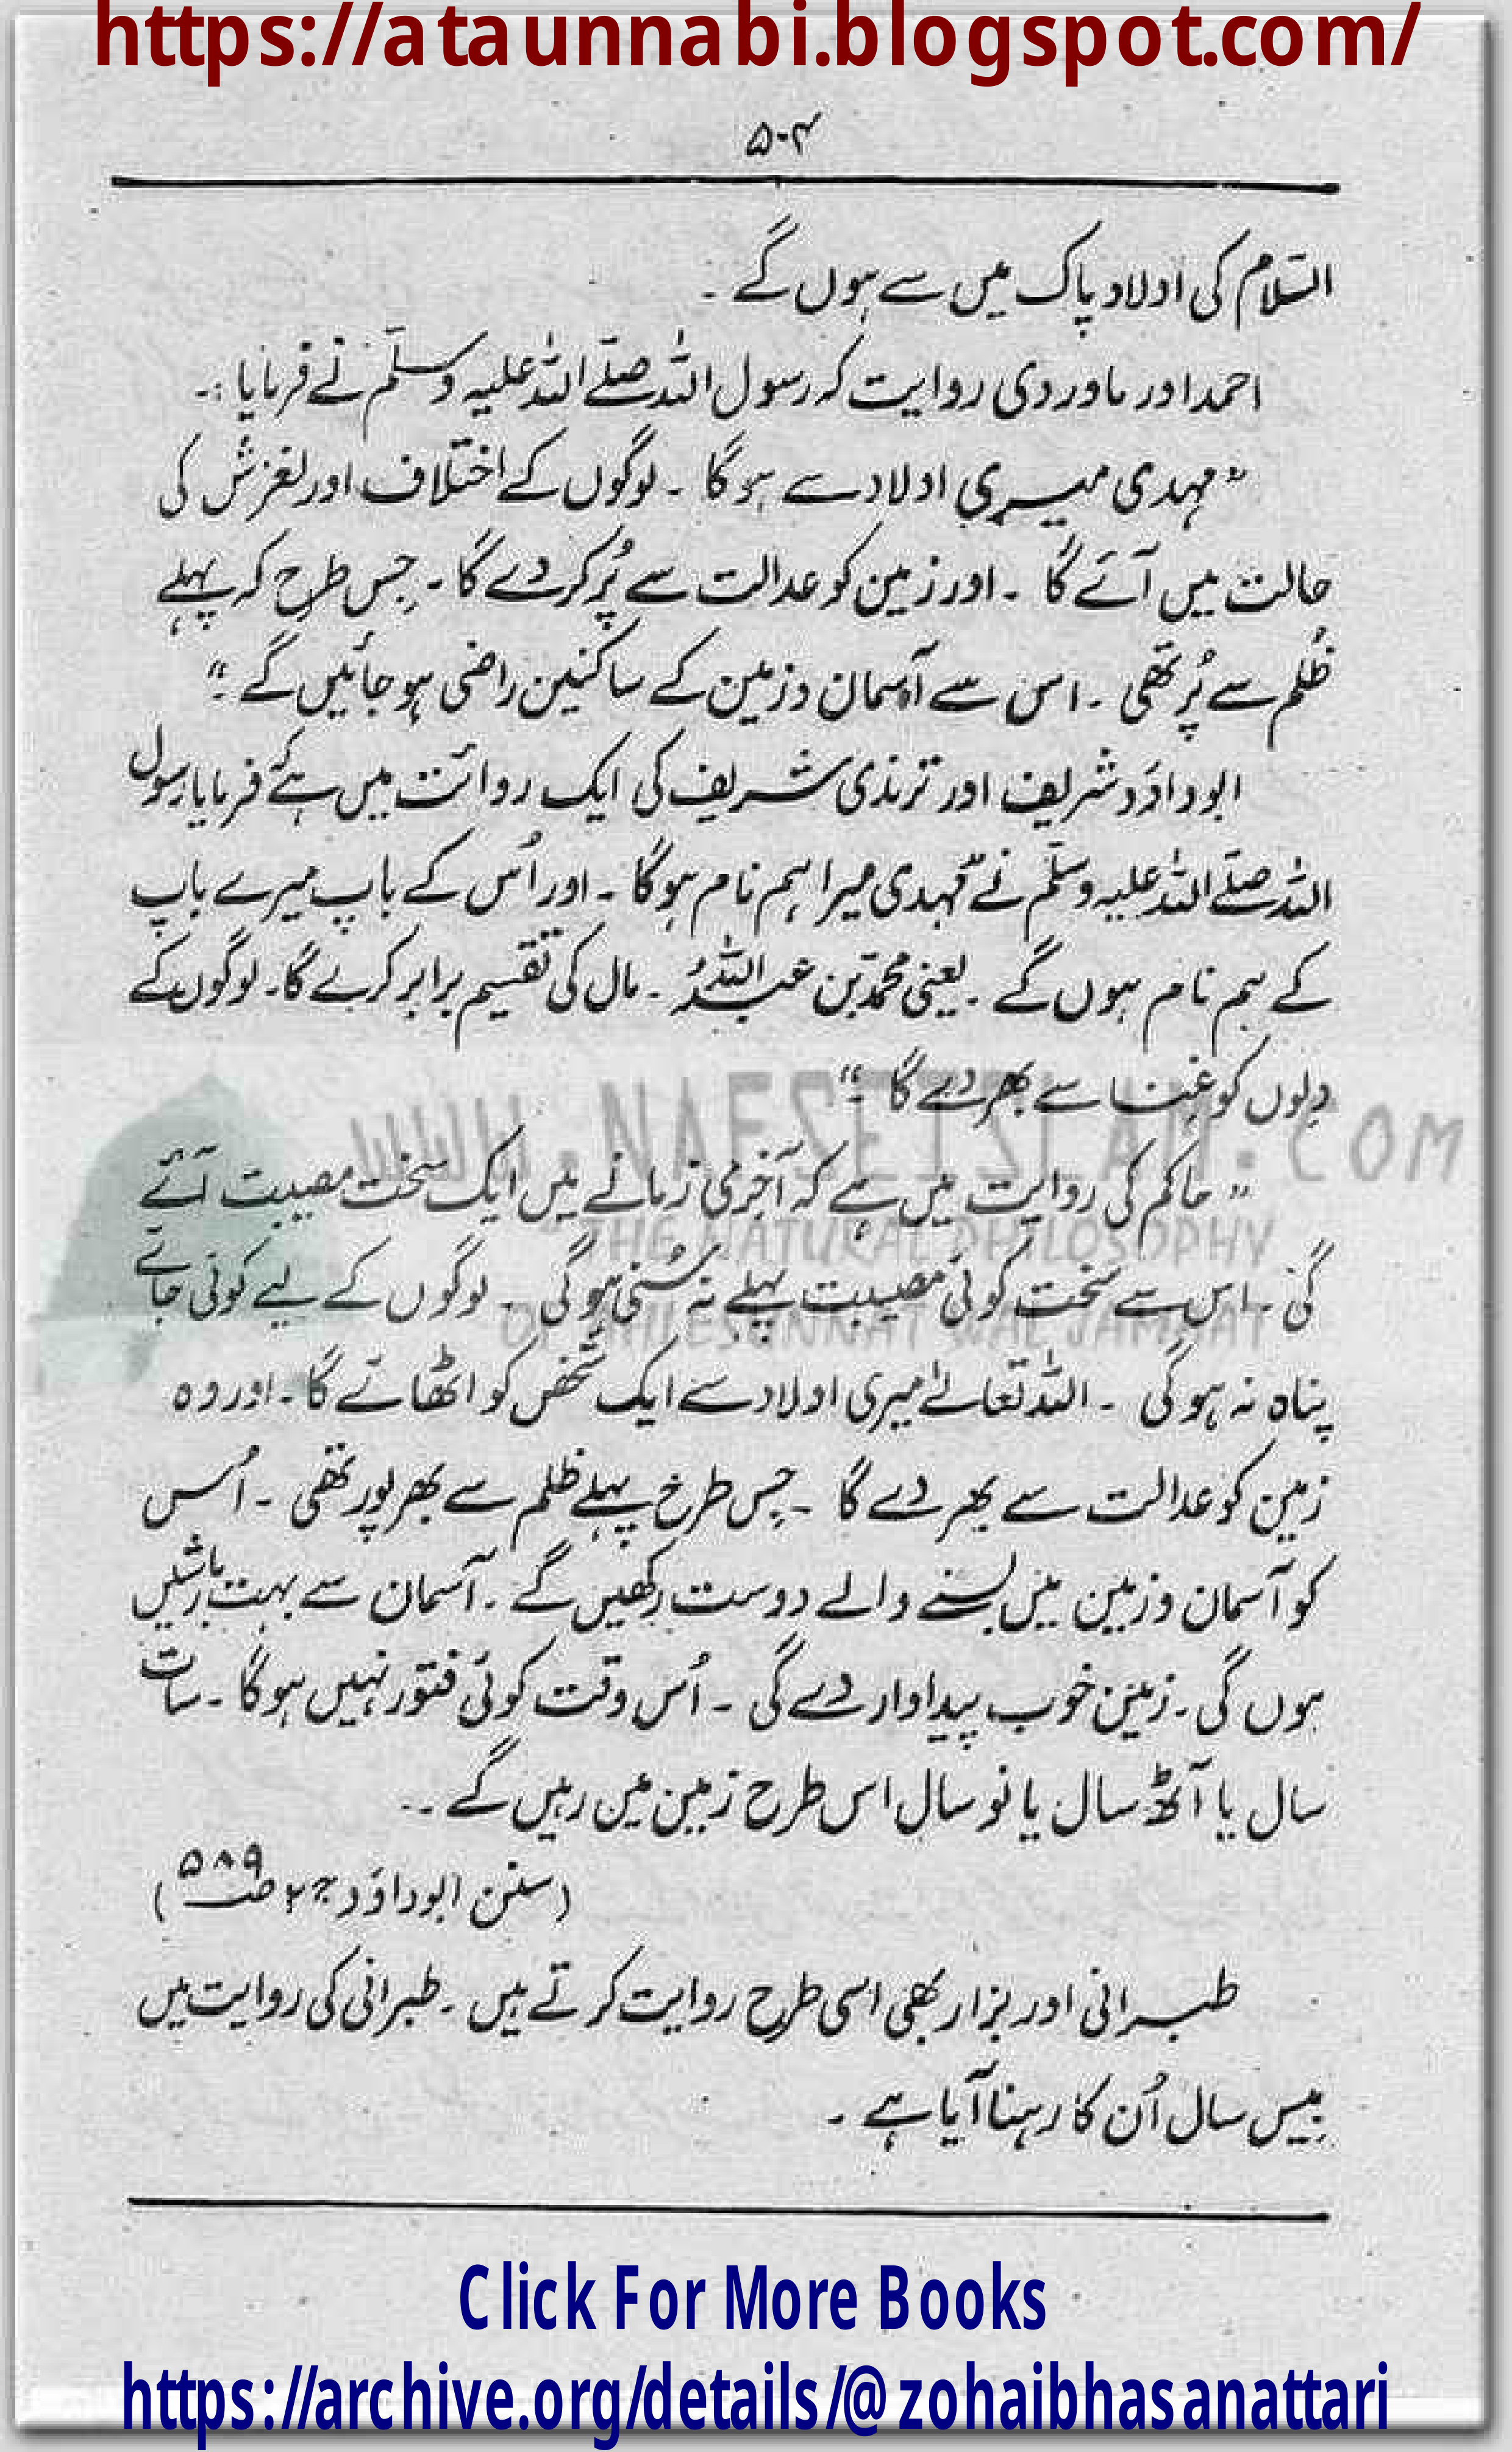 https://ataunnabi.blogspot.com/
۵۰۴
السّلام کی اولاد پاک میں سے ہوں گے ۔
احمد اور ماوردی روایت کہ رسول اللہ صلّے اللہ علیہ وسلّم نے فرمایا :۔
”مہدی میری اولاد سے ہوگا ۔ لوگوں کے اختلاف اور لغزش کی
حالت میں آئے گا ۔ اور زمین کو عدالت سے پُر کر دے گا ۔ جِس طرح کہ پہلے
ظُلم سے پُر تھی ۔ اس سے آسمان و زمین کے ساکنین راضی ہو جائیں گے ۔“
ابوداؤد شریف اور ترمذی شریف کی ایک روائت میں ہے فرمایا رسول
اللہ صلّے اللہ علیہ وسلّم نے ”مہدی میرا ہم نام ہوگا ۔ اور اُس کے باپ میرے باپ
کے ہم نام ہوں گے ۔ یعنی محمّد بن عبداللہؓ ۔ مال کی تقسیم برابر کرے گا ۔ لوگوں کے
دِلوں کو غِنا سے بھر دے گا ۔“
WWW.NAFSEISLAM.COM
” حاکم کی روایت میں ہے کہ آخری زمانے میں ایک سخت مصیبت آئے
THE NATURAL PHILOSOPHY
گی ۔ اس سے سخت کوئی مصیبت پہلے نہ سُنی ہوگی ۔ لوگوں کے لیے کوئی جائے
OF AHLESUNNAT WAL JAMAAT
پناہ نہ ہوگی ۔ اللہ تعالےٰ میری اولاد سے ایک شخص کو اٹھائے گا ۔ اور وہ
زمین کو عدالت سے بھر دے گا ۔ جِس طرح پہلے ظلم سے بھرپور تھی ۔ اُس
کو آسمان و زمین میں بسنے والے دوست رکھیں گے ۔ آسمان سے بہت بارشیں
ہوں گی ۔ زمین خوب پیداوار دے گی ۔ اُس وقت کوئی فتور نہیں ہوگا ۔ سات
سال یا آٹھ سال یا نو سال اس طرح زمین میں رہیں گے ۔۔
(سنن ابوداؤد ج ۲ ص ۵۸۹)
طبرانی اور بزار بھی اسی طرح روایت کرتے ہیں ۔ طبرانی کی روایت میں
بِیس سال اُن کا رہنا آیا ہے ۔
Click For More Books
https://archive.org/details/@zohaibhasanattari